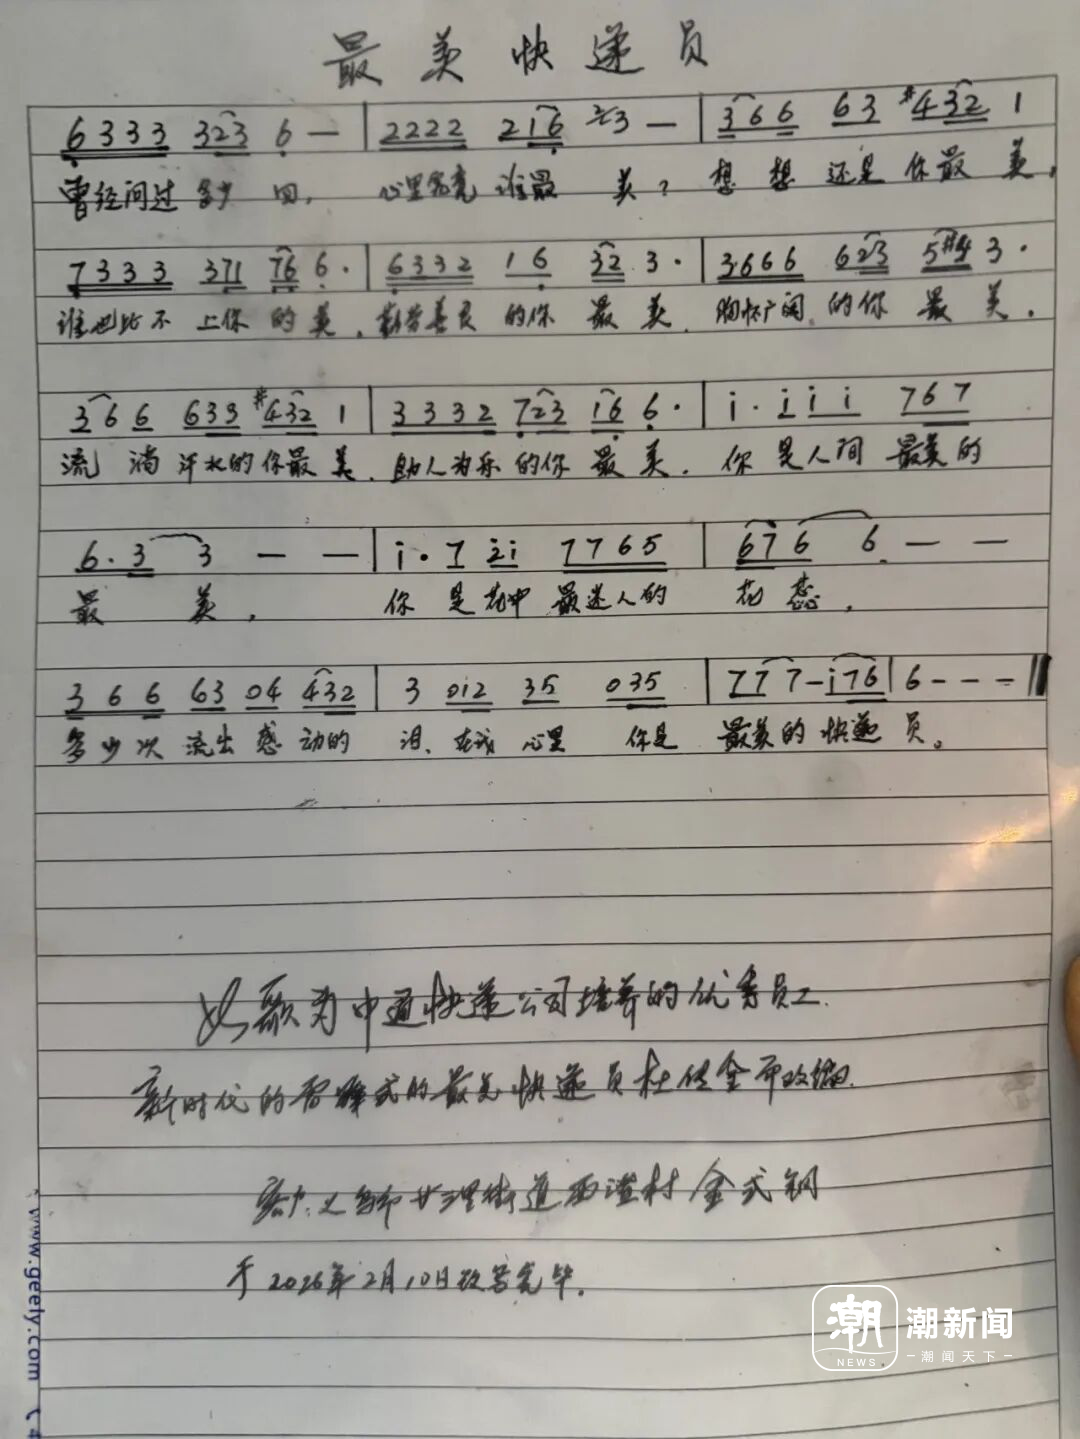 最美快递员
6333 323 6 — | 2222 216 3 — | 366 63 #432 1
曾经问过多少回，心里究竟谁最美？想想还是你最美，
7333 371 76 6· | 6332 16 32 3· | 3666 623 5#4 3·
谁也比不上你的美，勤劳善良的你最美，胸怀广阔的你最美，
366 633 #432 1 | 3332 723 16 6· | i· i i i 767
流淌汗水的你最美，助人为乐的你最美，你是人间最美的
6·3 3 — — | i·7 2i 7765 | 676 6 — —
最美，你是花中最迷人的花蕊，
366 63 04 432 | 3 012 35 035 | 777–i76 | 6 - - -
多少次流出感动的泪，在我心里你是最美的快递员。
歌为中通快递公司培养的优秀员工
新时代的雷锋式的最美快递员杜 金而改编
义乌市廿三里街道西 村金式钢
于2026年2月10日改写完毕。
www.geely.com
潮 NEWS 潮新闻
潮闻天下